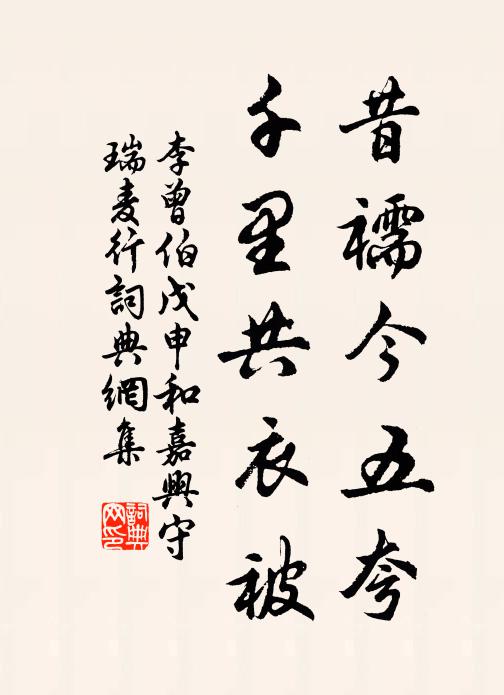 昔襦今五夸
千里共衣被
李曾伯戊申和嘉興守
瑞麦行詞典網集
詞典
网印